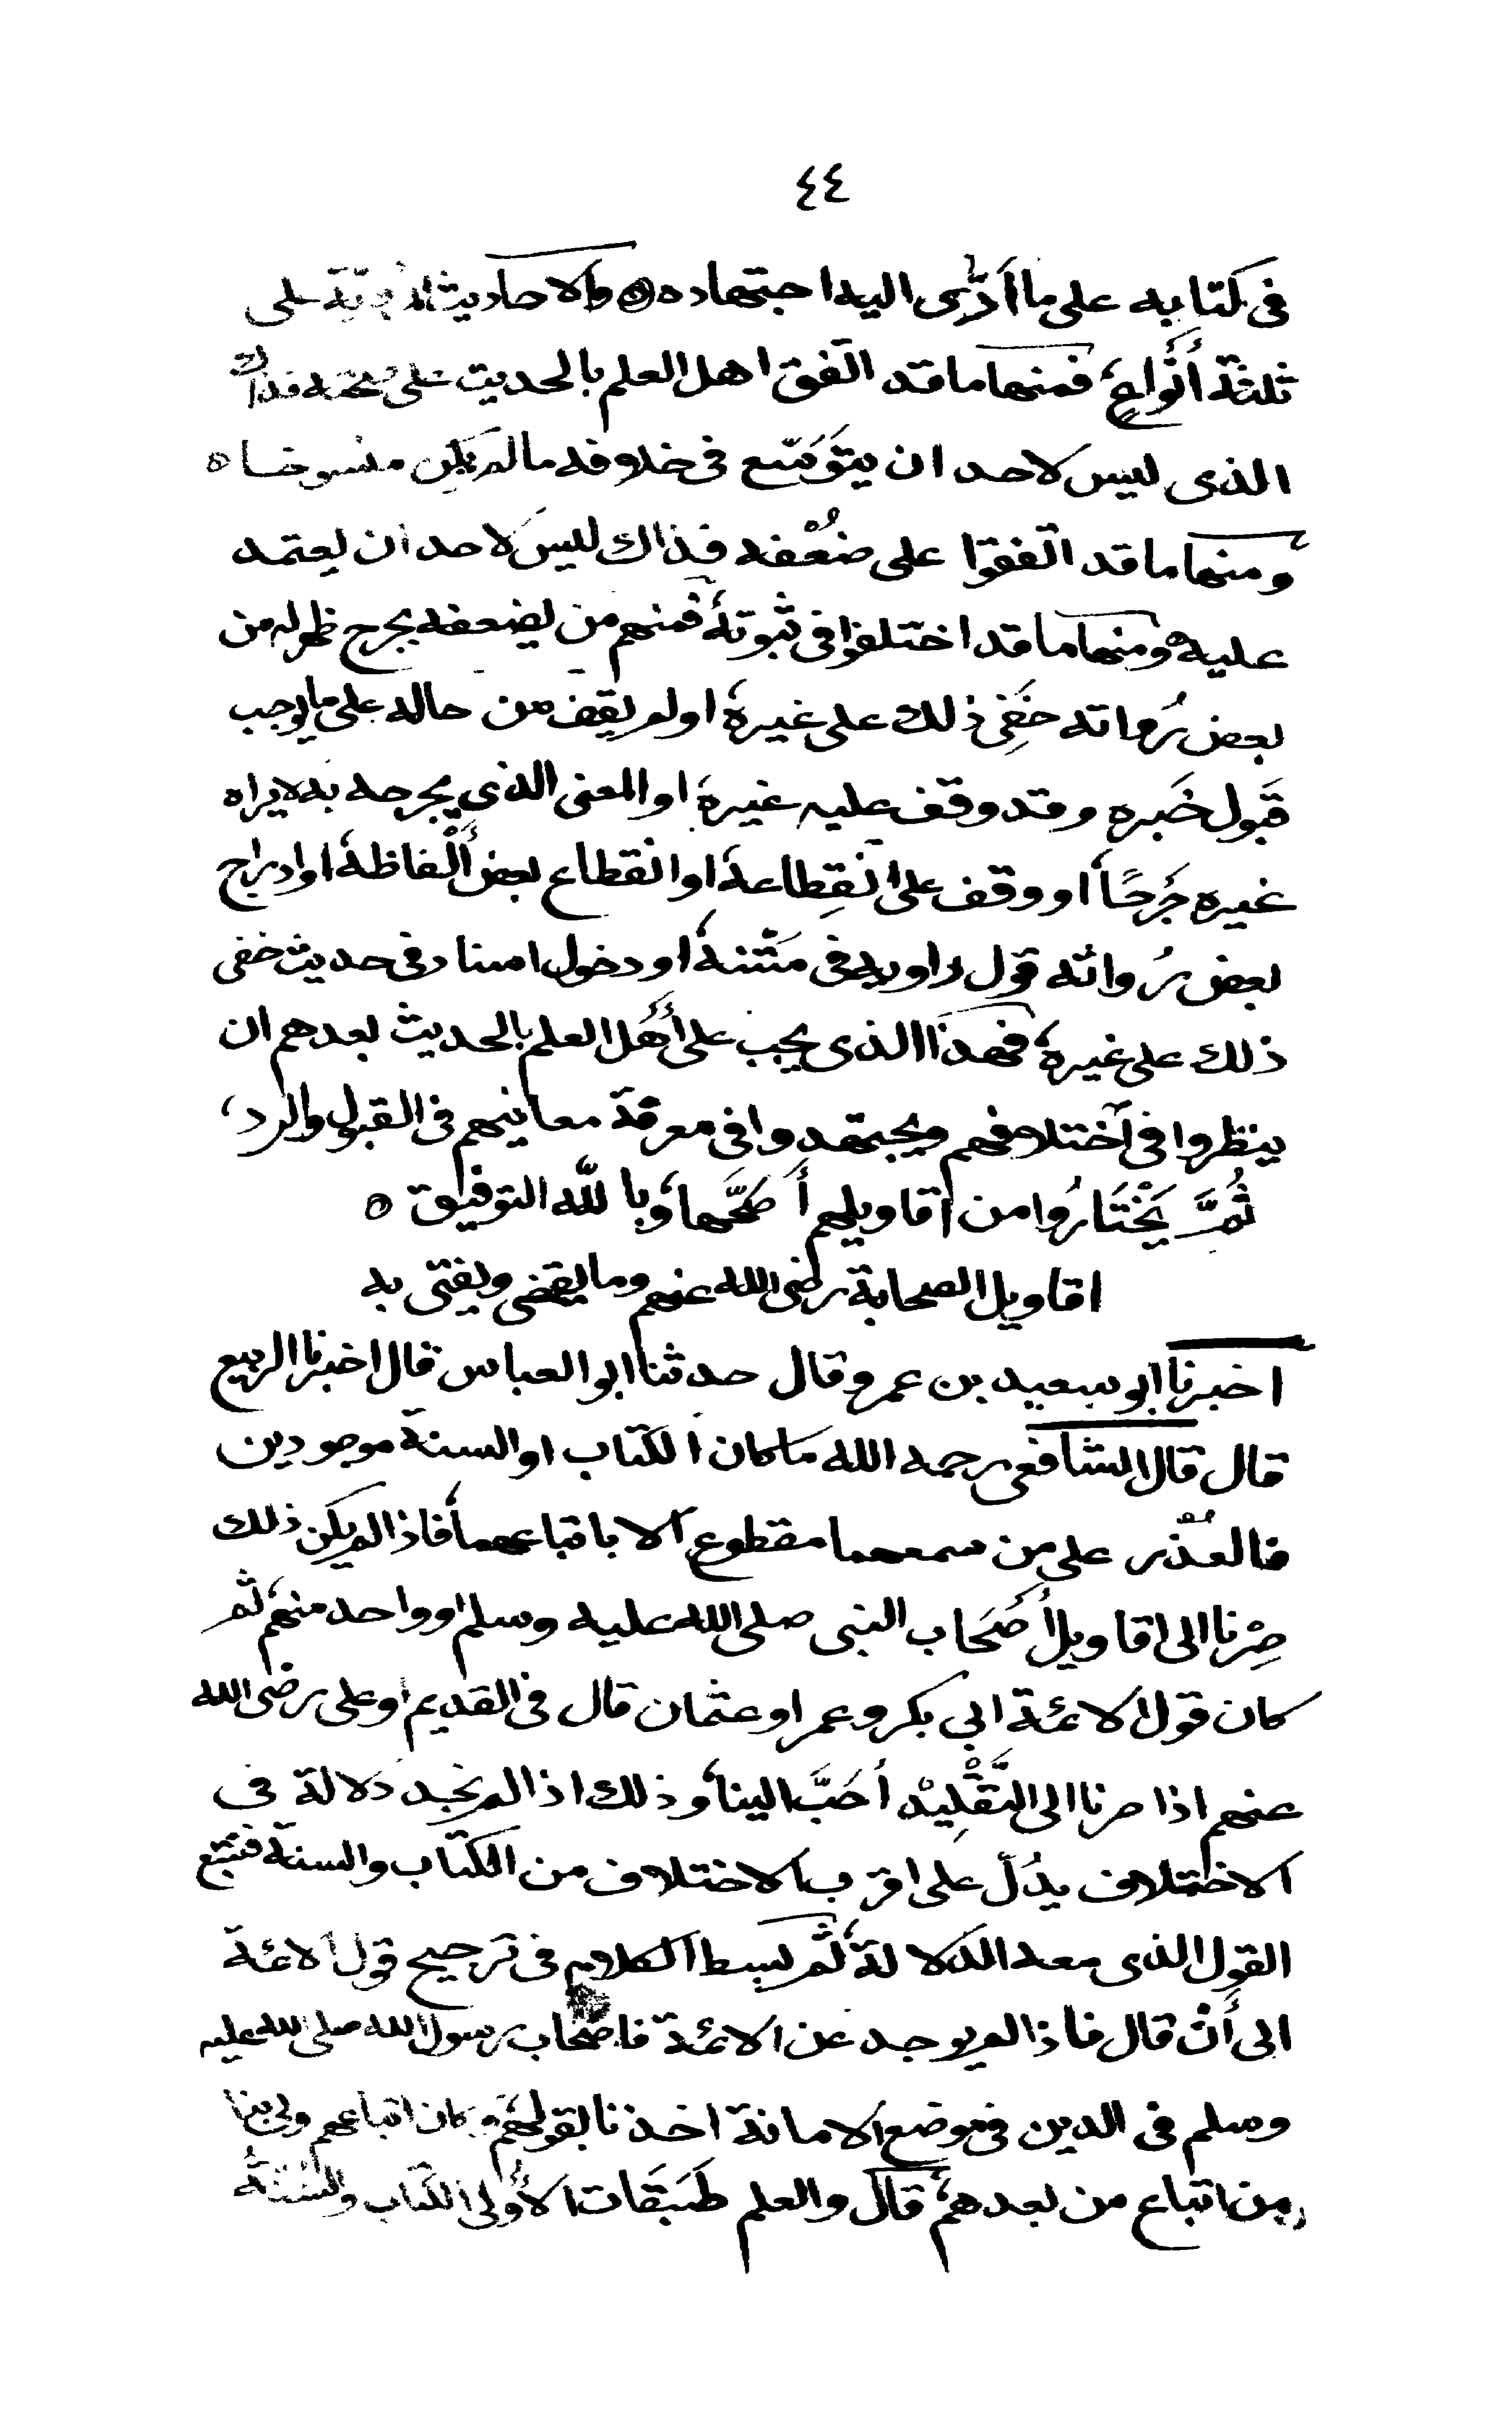 ٤٤
فى كتابه على ما أدّى اليه اجتهاده ٥ والاحاديث المروية على
ثلثة أنواع، فمنها ما قد اتفق اهل العلم بالحديث على صحته فذاك
الذى ليس لاحد ان يتوسّع فى خلافه ما لم يكن منسوخا ٥
ومنها ما قد اتفقوا على ضُعْفه فذاك ليس لاحد ان يعتمد
عليه ٥ ومنها ما قد اختلفوا فى ثبوته، فمنهم من يضعفه بجرح ظهر له من
بعض رُواته خَفِى ذلك على غيره، او لم يقف من حاله على ما يوجب
قَبول خَبره وقد وقف عليه غيره، او المعنى الذي يجرحه به لا يراه
غيره جَرحًا، او وقف على انقِطاعه، او انقطاع بعض ألْفاظه، او ادراج
بعض رُواته قول راويه فى مَتْنه، او دخول اسناد فى حديث خفى
ذلك على غيره، فهذا الذى يجب على أهْل العلم بالحديث بعدهم ان
ينظروا فى اختلافهم ويجتهدوا فى معرفة معانيهم فى القبول والرد،
ثُمَّ يَخْتَارُوا من اقاويلهم أصَحَّها، وبا للّه التوفيق ٥
اقاويل الصحابة رضى الله عنهم وما يقضى ويفتى به
اخبرنا ابو سعيد بن عمرو قال حدثنا ابو العباس قال اخبرنا الربيع
قال قال الشافعى رحمه الله ما كان الكتاب او السنة موجودين
فالعُذْر على من سمعهما مقطوع الا باتباعهما، فاذا لم يكن ذلك
صِرْنا الى اقاويل أصْحَاب النبى صلى الله عليه وسلم او واحد منهم، ثم
كان قول الائمة ابى بكر وعمر او عثمان قال فى القديم او على رضى الله
عنهم اذا صرنا الى التَّقْلِيْد أحَبَّ الينا، وذلك اذا لم نجد دلالة فى
الاختلاف يدُلّ على اقرب الاختلاف من الكتاب والسنة فنتبع
القول الذى معه الدلالة، ثم بسط الكلام فى ترجيح قول الائمة
الى أن قال فاذا لم يوجد عن الائمة فاصْحاب رسول الله صلى الله عليه
وسلم فى الدين فى موضع الامانة اخذنا بقولهم، وكان اتباعهم اولى بنا
من اتباع من بعدهم، قال والعلم طَبَقَات الأُولى الكتاب والسُنّة